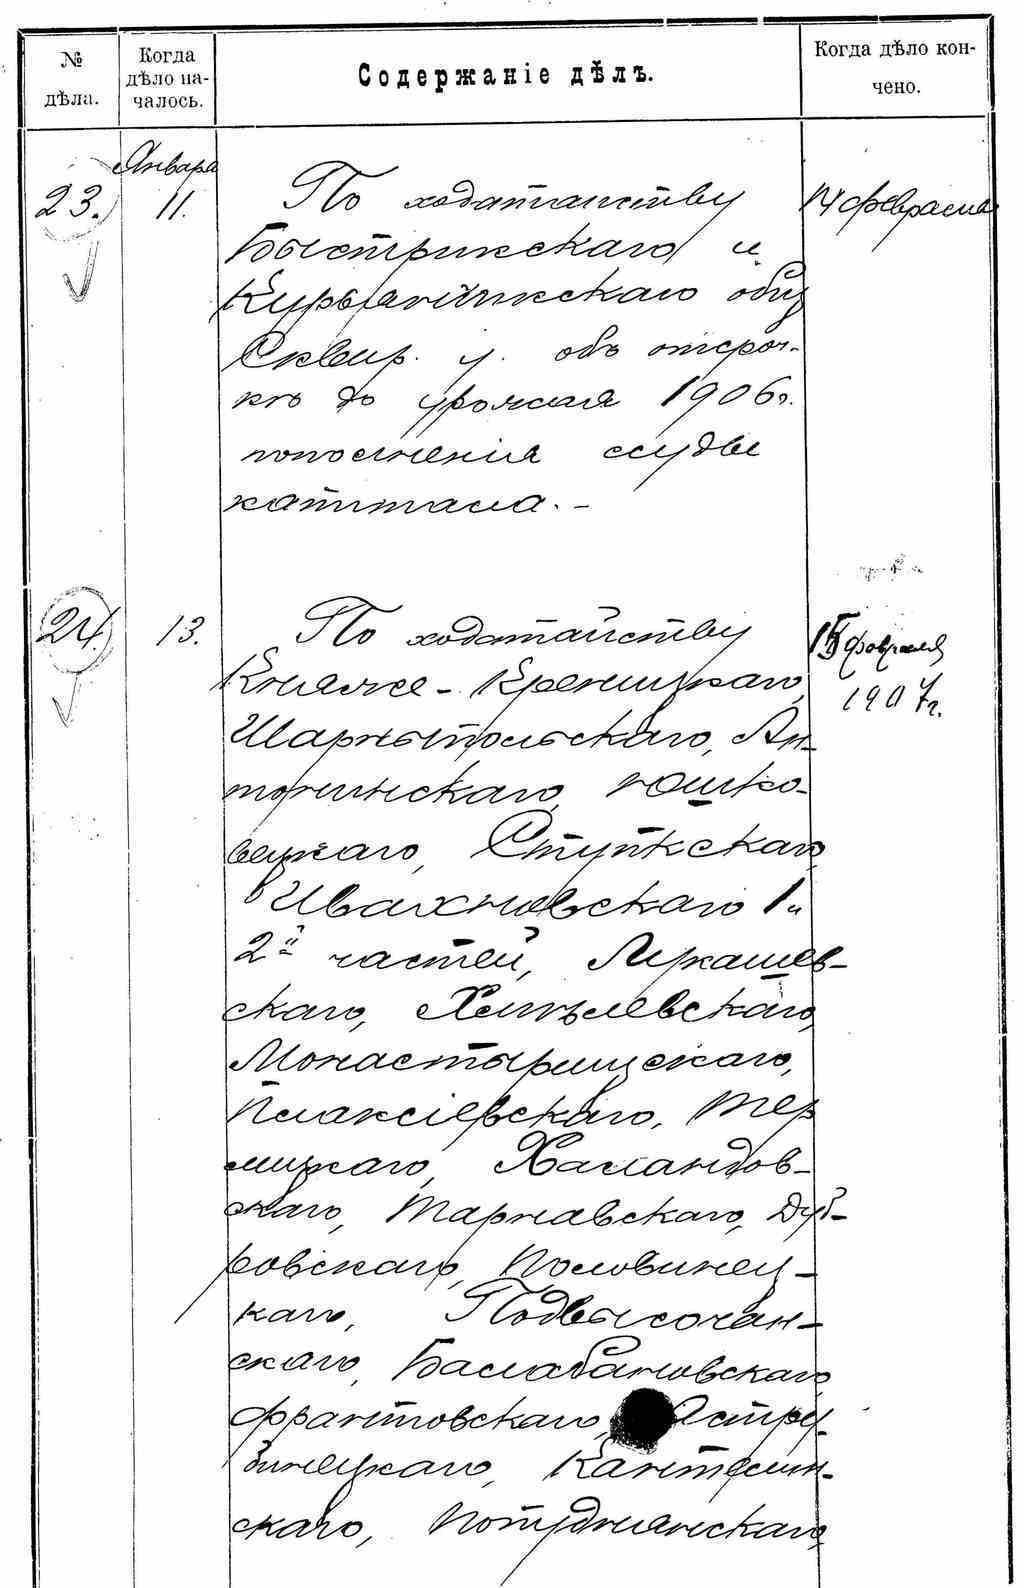 №
дѣла.
Когда
дѣло на-
чалось.
Содержаніе дѣлъ.
Когда дѣло кон-
чено.
Января
23. 11. По ходатайству 14 февраля
Быстрикскаго и
Курьянчикскаго общ
Сквир. у. объ отсроч-
кѣ до урожая 1906 г.
пополненія ссудъ
капитала. -
24. 13. По ходатайству 15 февраля
Княже-Креницкаго, 1907 г.
Шарныпольскаго, Ан-
тонинскаго, Юшко-
вецкаго, Ступкскаго
Ивахновскаго 1 и
2й частей, Лукашев-
скаго, Хмѣлевскаго,
Монастырищскаго,
Плаксіевскаго, Тер
лицкаго, Халаидов-
скаго, Тарнавскаго, Дуб-
ровскаго, Половинец-
каго, Подвысочан-
скаго, Балабановскаго
Франтовскаго, Ястру-
бинецкаго, Кантелин-
скаго, Потуднянскаго,